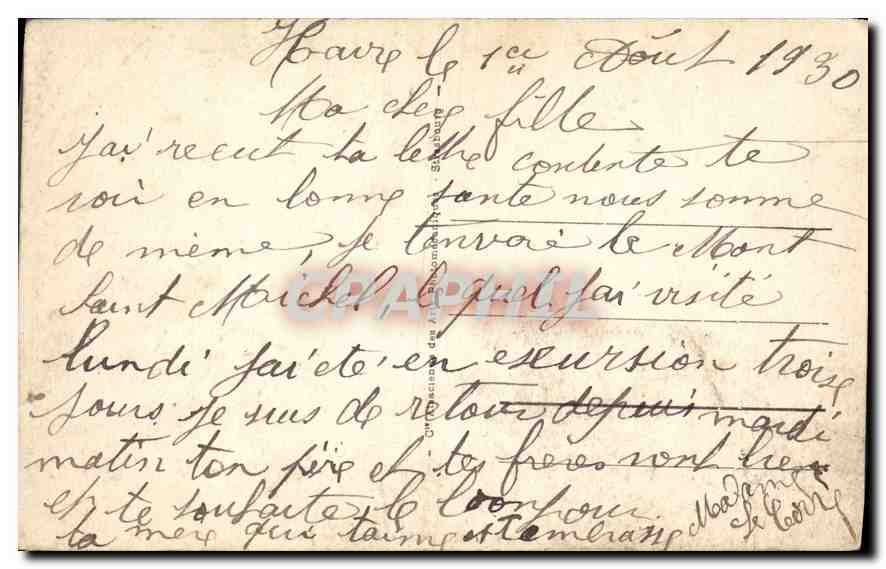 Havre le 1er Août 1930
Ma cher fille
J'ai recut ta lettre contente te
voir en bonne sante nous somme
de mème, je t'envoie le Mont
Saint Michel, le quel j'ai visité
lundi j'ai eté en excursion trois
jours je suis de retour depuis mardi
matin ton père et tes frères vont bien
et te souhaite le bonjour
ta mere qui t'aime et t'embrasse
Madame
Cie Alsacienne des Arts Photomécaniques - Strasbourg
CPAPHIL